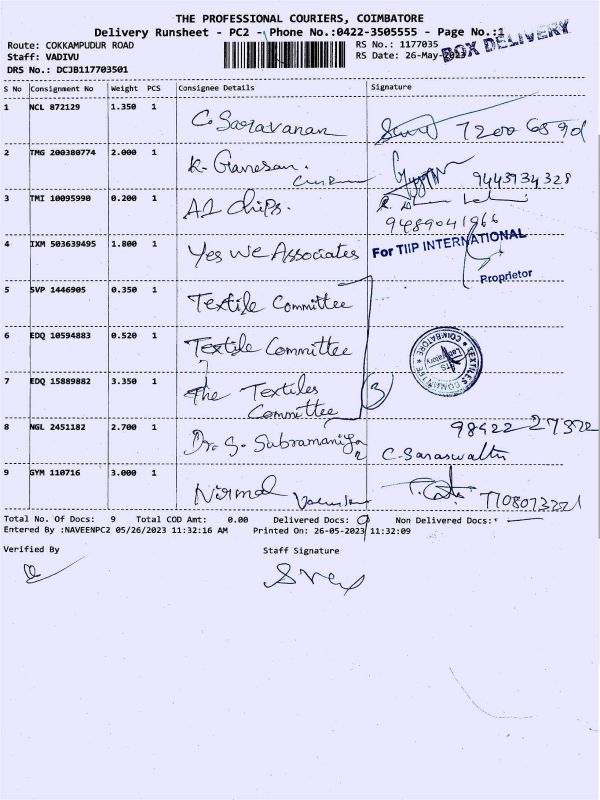 THE PROFESSIONAL COURIERS, COIMBATORE
Delivery Runsheet - PC2 - Phone No.:0422-3505555 - Page No.:1
Route: COKKAMPUDUR ROAD RS No.: 1177035
Staff: VADIVU RS Date: 26-May-2023
BOX DELIVERY
DRS No.: DCJB117703501
S No Consignment No Weight PCS Consignee Details Signature
1 NCL 872129 1.350 1 C. Saravanan
2 TMG 200380774 2.000 1 K. Ganesan. 9443734328
3 TMI 10095990 0.200 1 A1 Chips. 9489041966
4 IXM 503639495 1.800 1 Yes We Associates For TIIP INTERNATIONAL
Proprietor
5 SVP 1446905 0.350 1 Textile Committee
6 EDQ 10594883 0.520 1 Textile Committee
TEXTILES COMMITTEE * COIMBATORE *
Laboratory
7 EDQ 15889882 3.350 1 The Textiles Committee 3
8 NGL 2451182 2.700 1 Dr. S. Subramaniyan C. Saraswathi
9 GYM 110716 3.000 1 Nirmal
Total No. Of Docs: 9 Total COD Amt: 0.00 Delivered Docs: 9 Non Delivered Docs: -
Entered By :NAVEENPC2 05/26/2023 11:32:16 AM Printed On: 26-05-2023 11:32:09
Verified By Staff Signature